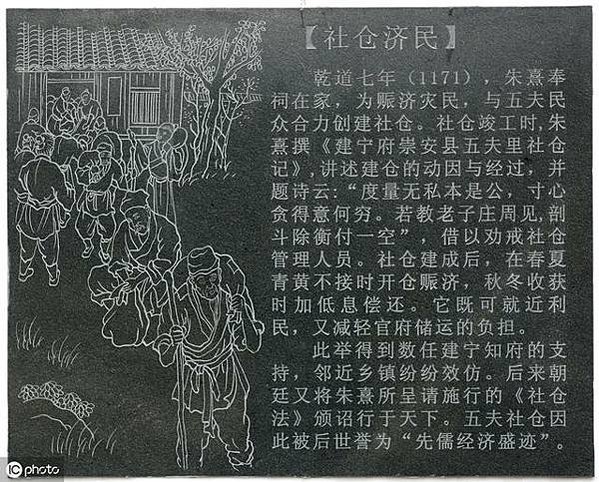 【社仓济民】
乾道七年（1171），朱熹奉
祠在家，为赈济灾民，与五夫民
众合力创建社仓。社仓竣工时,朱
熹撰《建宁府崇安县五夫里社仓
记》,讲述建仓的动因与经过，并
题诗云:“度量无私本是公，寸心
贪得意何穷。若教老子庄周见,剖
斗除衡付一空”，借以劝戒社仓
管理人员。社仓建成后，在春夏
青黄不接时开仓赈济，秋冬收获
时加低息偿还。它既可就近利
民，又减轻官府储运的负担。
此举得到数任建宁知府的支
持，邻近乡镇纷纷效仿。后来朝
廷又将朱熹所呈请施行的《社仓
法》颁诏行于天下。五夫社仓因
此被后世誉为“先儒经济盛迹”。
iC photo